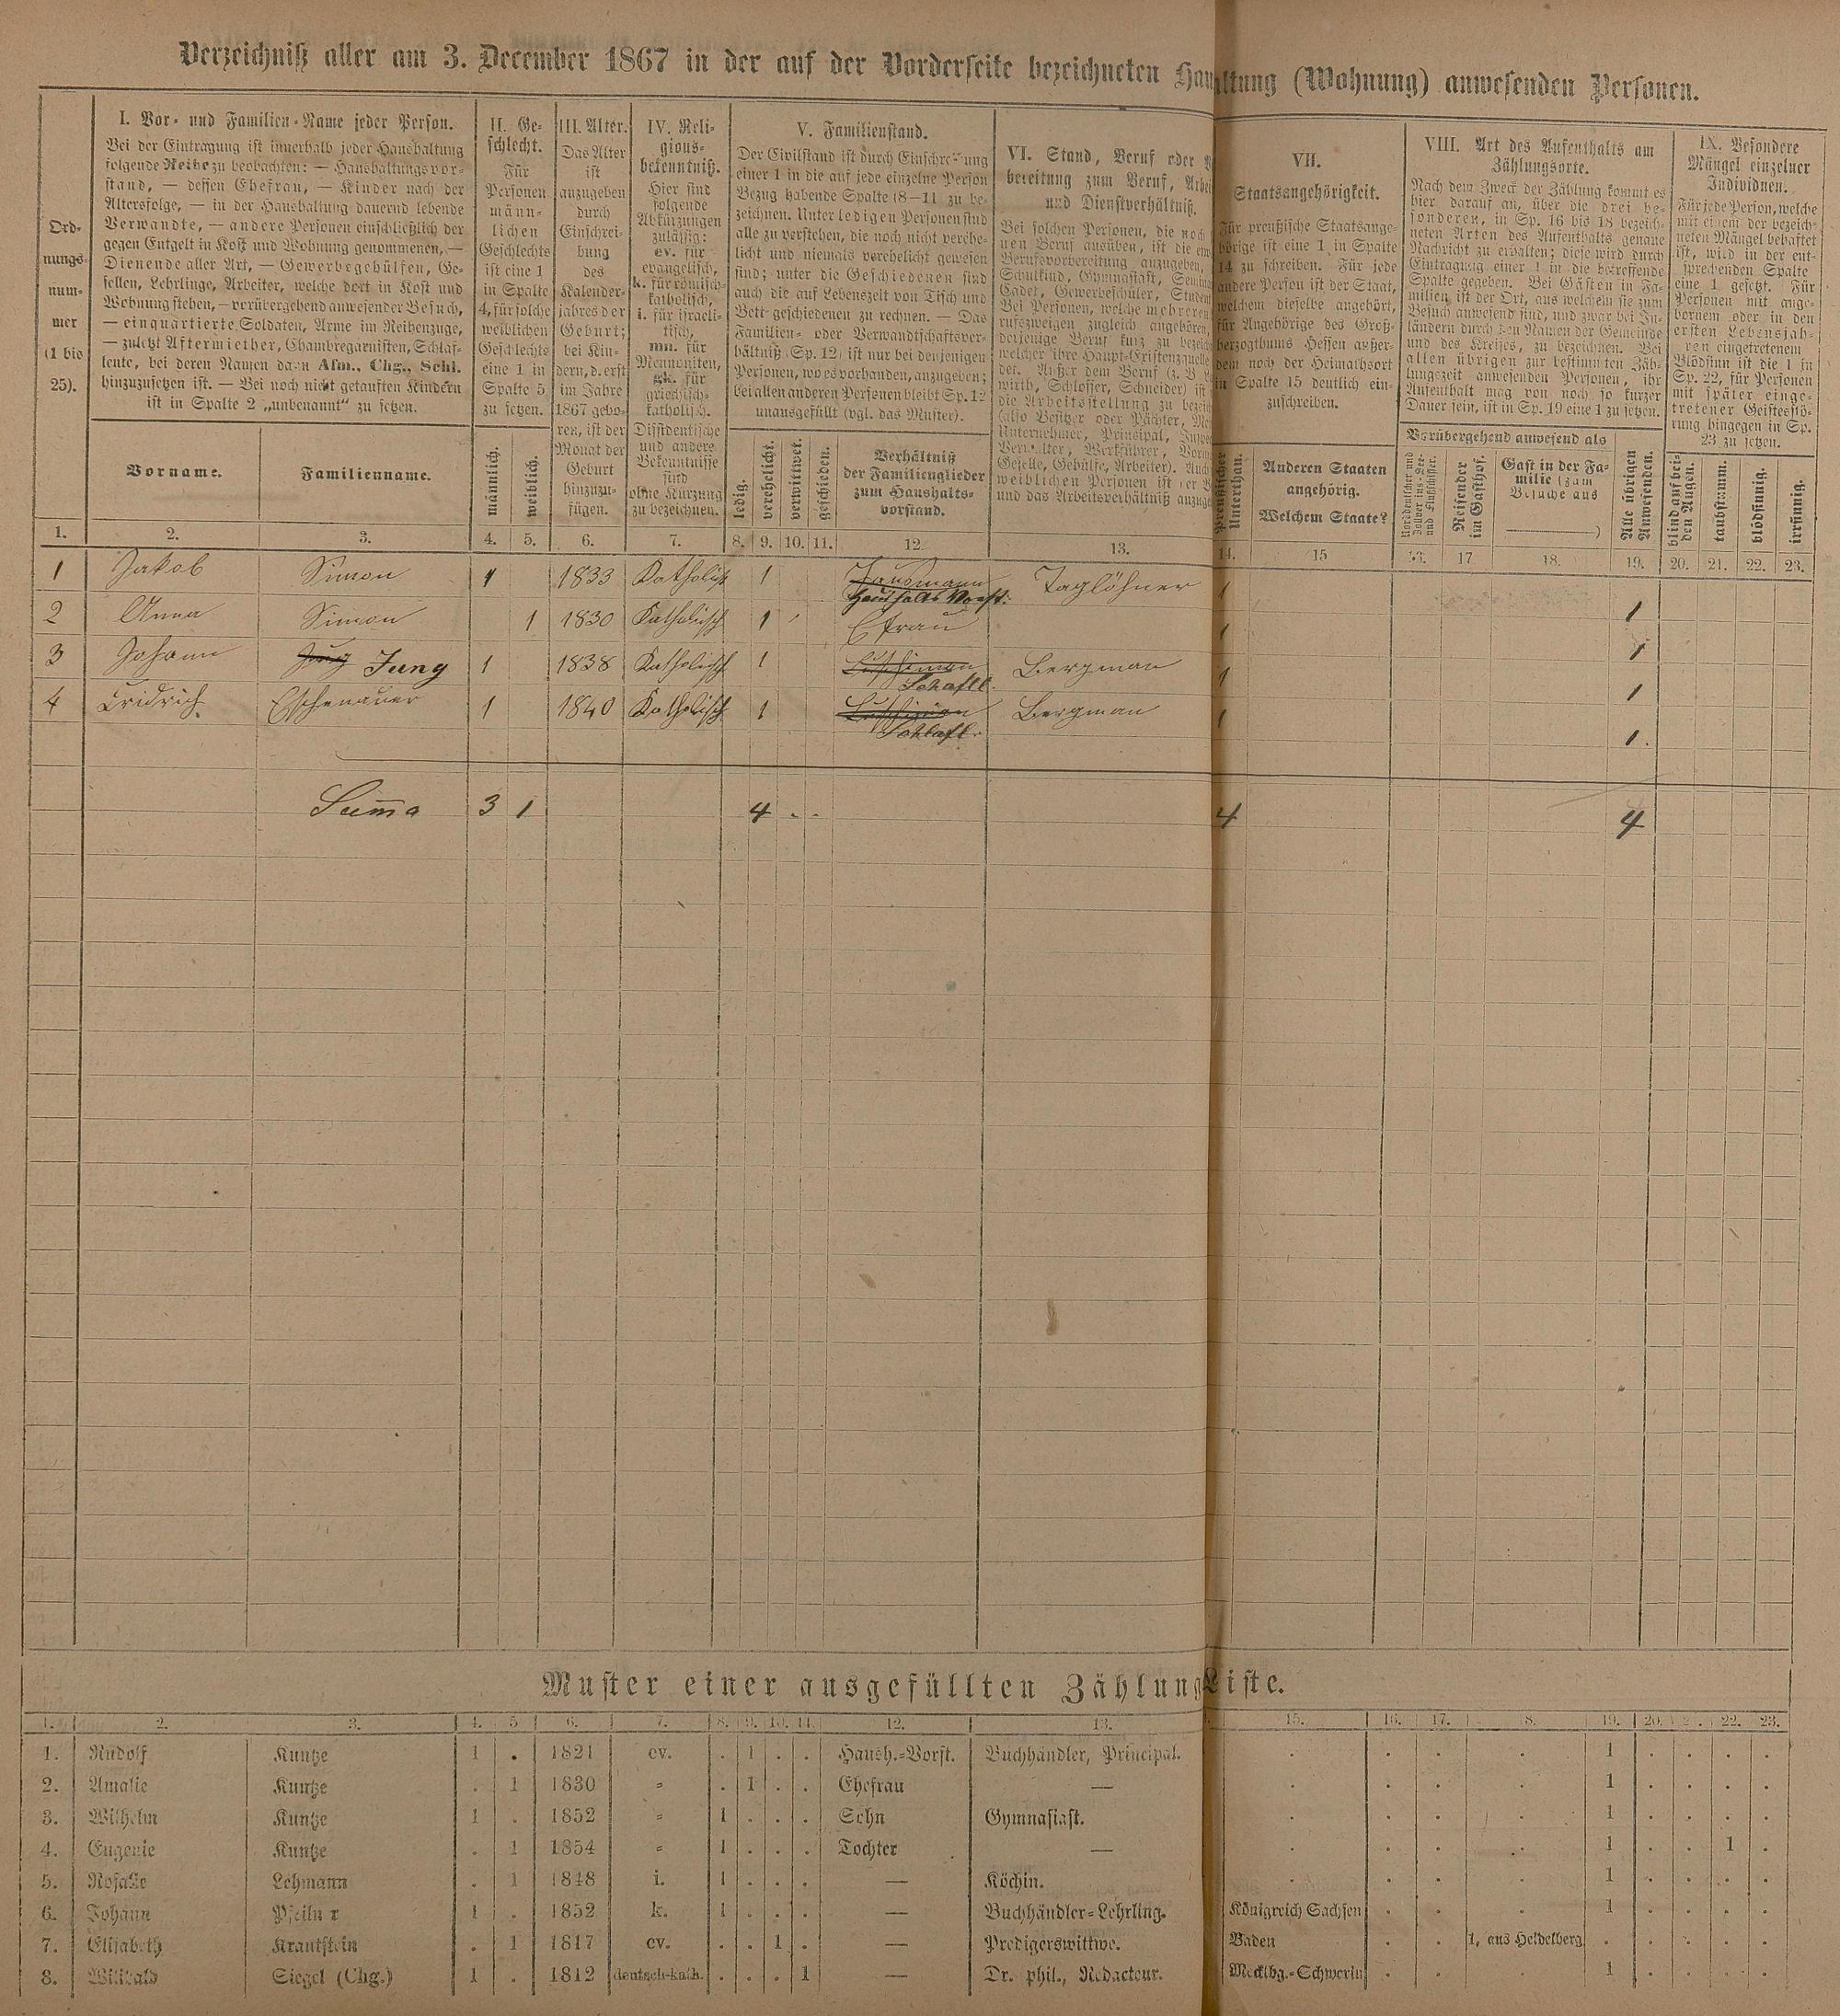 Verzeichniß aller am 3. December 1867 in der auf der Vorderseite bezeichneten Haushaltung (Wohnung) anwesenden Personen.
Ord-
nungs-
num-
mer
(1 bis
25).
I. Vor- und Familien-Name jeder Person.
Bei der Eintragung ist innerhalb jeder Haushaltung
folgende Reihe zu beobachten: — Haushaltungsvor-
stand, — dessen Ehefrau, — Kinder nach der
Altersfolge, — in der Haushaltung dauernd lebende
Verwandte, — andere Personen einschließlich der
gegen Entgelt in Kost und Wohnung genommenen, —
Dienende aller Art, — Gewerbegehülfen, Ge-
sellen, Lehrlinge, Arbeiter, welche dort in Kost und
Wohnung stehen, — vorübergehend anwesender Besuch,
— einquartierte Soldaten, Arme im Reihenzuge,
— zuletzt Aftermiether, Chambregarnisten, Schlaf-
leute, bei deren Namen dann Afm., Chg., Schl.
hinzuzusetzen ist. — Bei noch nicht getauften Kindern
ist in Spalte 2 „unbenannt“ zu setzen.
Vorname.
Familienname.
II. Ge-
schlecht.
Für
Personen
männ-
lichen
Geschlechts
ist eine 1
in Spalte
4, für solche
weiblichen
Geschlechts
eine 1 in
Spalte 5
zu setzen.
männlich.
weiblich.
III. Alter.
Das Alter
ist
anzugeben
durch
Einschrei-
bung
des
Kalender-
jahres der
Geburt;
bei Kin-
dern, d. erst
im Jahre
1867 gebo-
ren, ist der
Monat der
Geburt
hinzuzu-
fügen.
IV. Reli-
gions-
bekenntniß.
Hier sind
folgende
Abkürzungen
zulässig:
ev. für
evangelisch,
k. für römisch-
katholisch,
i. für israeli-
tisch,
mn. für
Mennoniten,
gk. für
griechisch-
katholisch.
Dissidentische
und andere
Bekenntnisse
sind
ohne Kürzung
zu bezeichnen.
V. Familienstand.
Der Civilstand ist durch Einschreibung
einer 1 in die auf jede einzelne Person
Bezug habende Spalte (8—11) zu be-
zeichnen. Unter ledigen Personen sind
alle zu verstehen, die noch nicht verehe-
licht und niemals verehelicht gewesen
sind; unter die Geschiedenen sind
auch die auf Lebenszeit von Tisch und
Bett geschiedenen zu rechnen. — Das
Familien- oder Verwandtschaftsver-
hältniß (Sp. 12) ist nur bei denjenigen
Personen, wo es vorhanden, anzugeben;
bei allen anderen Personen bleibt Sp. 12
unausgefüllt (vgl. das Muster).
ledig.
verehelicht.
verwittwet.
geschieden.
Verhältniß
der Familienglieder
zum Haushalts-
vorstand.
VI. Stand, Beruf oder
bereitung zum Beruf,
und Dienstverhältniß.
Bei solchen Personen, die noch
nen Beruf ausüben, ist die
Berufsvorbereitung anzugeben,
Schulkind, Gymnasiast,
Cadet, Gewerbeschüler,
Bei Personen, welche mehreren
rufszweigen zugleich angehören,
derjenige Beruf kurz zu
welcher ihre Haupt-Existenzquelle
det. Außer dem Beruf (z. B.
wirth, Schlosser, Schneider) ist
die Arbeitsstellung zu
(also Besitzer oder Pächter,
Unternehmer, Principal,
Verwalter, Werkführer,
Geselle, Gehülfe, Arbeiter). Auch
weiblichen Personen ist der
und das Arbeitsverhältniß
VII.
Staatsangehörigkeit.
Für preußische Staatsange-
hörige ist eine 1 in Spalte
14 zu schreiben. Für jede
andere Person ist der Staat,
welchem dieselbe angehört,
für Angehörige des Groß-
herzogthums Hessen außer-
dem noch der Heimathsort
in Spalte 15 deutlich ein-
zuschreiben.
Preußischer
Unterthan.
Anderen Staaten
angehörig.
Welchem Staate?
VIII. Art des Aufenthalts am
Zählungsorte.
Nach dem Zweck der Zählung kommt es
hier darauf an, über die drei be-
sonderen, in Sp. 16 bis 18 bezeich-
neten Arten des Aufenthalts genaue
Nachricht zu erhalten; diese wird durch
Eintragung einer 1 in die betreffende
Spalte gegeben. Bei Gästen in Fa-
milien ist der Ort, aus welchem sie zum
Besuch anwesend sind, und zwar bei In-
ländern durch den Namen der Gemeinde
und des Kreises, zu bezeichnen. Bei
allen übrigen zur bestimmten Zäh-
lungszeit anwesenden Personen, ihr
Aufenthalt mag von noch so kurzer
Dauer sein, ist in Sp. 19 eine 1 zu setzen.
Vorübergehend anwesend als
Reisender
im Gasthof.
Gast in der Fa-
milie (zum
Besuche aus
)
Alle übrigen
Anwesenden.
IX. Besondere
Mängel einzelner
Individuen.
Für jede Person, welche
mit einem der bezeich-
neten Mängel behaftet
ist, wird in der ent-
sprechenden Spalte
eine 1 gesetzt. Für
Personen mit ange-
bornem oder in den
ersten Lebensjah-
ren eingetretenem
Blödsinn ist die 1 in
Sp. 22, für Personen
mit später einge-
tretener Geistesstö-
rung hingegen in Sp.
23 zu setzen.
blind auf bei-
den Augen.
taubstumm.
blödsinnig.
irrsinnig.
1. 2. 3. 4. 5. 6. 7. 8. 9. 10. 11. 12. 13. 14. 15 16. 17 18. 19. 20. 21. 22. 23.
1 Jakob Simon 1 1833 Katholisch 1 Hausmann Taglöhner 1 1
Haushalts Vorst.
2 Anna Simon 1 1830 Katholisch 1 Efrau 1 1
3 Johann Jung Jung 1 1838 Katholisch 1 Bergman 1 1
Schafll.
4 Fridrich Eschenauer 1 1840 Katholisch 1 Bergman 1 1.
Schlafl.
Suma 3 1 4 . . 4 4
Muster einer ausgefüllten Zählungsliste.
1. 2. 3. 4. 5 6. 7. 8. 9. 10. 11. 12. 13. 15. 16. 17. 18. 19. 20. 21. 22. 23.
1. Rudolf Kuntze 1 . 1821 ev. . 1 . . Haush.-Vorst. Buchhändler, Principal. . . . . 1 . . . .
2. Amalie Kuntze . 1 1830 " . 1 . . Ehefrau — . . . . 1 . . . .
3. Wilhelm Kuntze 1 . 1852 " 1 . . . Sohn Gymnasiast. . . . . 1 . . . .
4. Eugenie Kuntze . 1 1854 " 1 . . . Tochter — . . . . 1 . . 1 .
5. Rosalie Lehmann . 1 1848 i. 1 . . . — Köchin. . . . . 1 . . . .
6. Johann Pfeilner 1 . 1852 k. 1 . . . — Buchhändler-Lehrling. Königreich Sachsen . . . 1 . . . .
7. Elisabeth Krautstein . 1 1817 ev. . . 1 . — Predigerswittwe. Baden . . 1, aus Heidelberg . . . . .
8. Willibald Siegel (Chg.) 1 . 1812 deutsch-kath. . . . 1 — Dr. phil., Redacteur. Mecklbg.-Schwerin . . . 1 . . . .